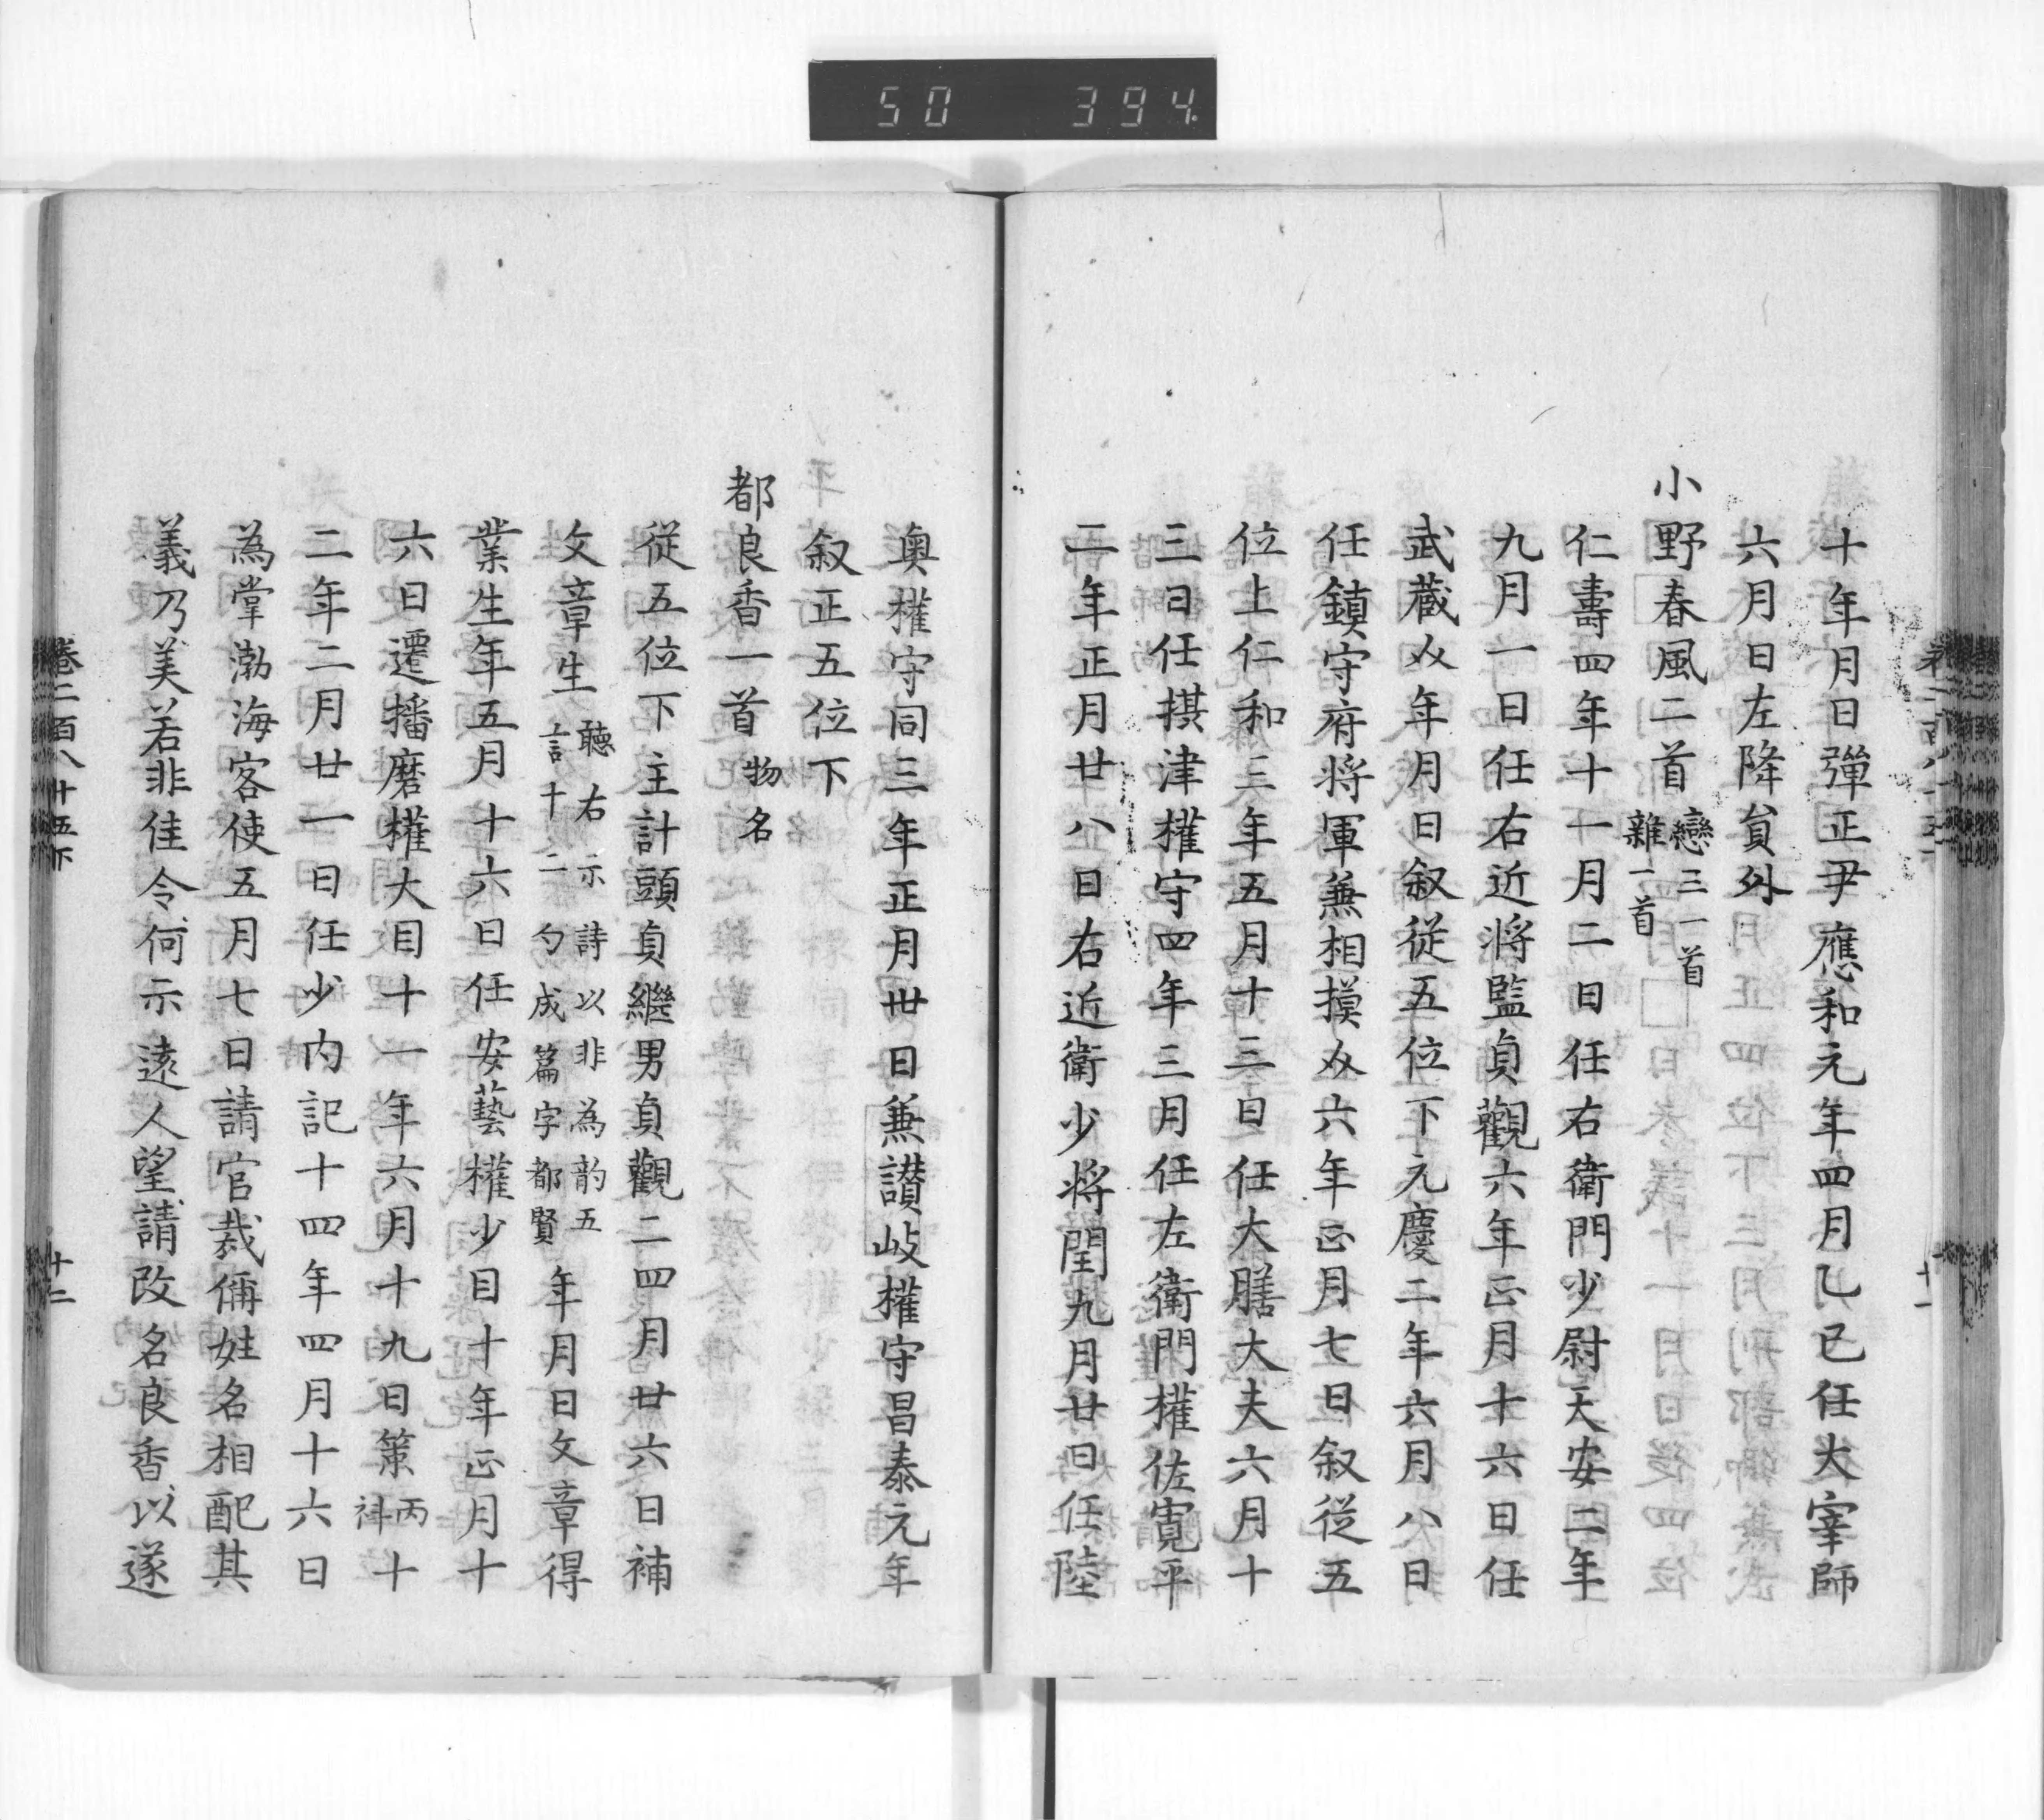 50 394
十年月日彈正尹應和元年四月乙已任大宰師
六月日左降貟外
小野春風二首 戀三一首 雜一首
仁壽四年十一月二日任右衛門少尉天安二年
九月一日任右近將監貞觀六年正月十六日任
武藏㕛年月日叙從五位下元慶二年六月八日
任鎮守府將軍兼相摸㕛六年正月七日叙從五
位上仁和三年五月十三日任大膳大夫六月十
三日任摂津權守四年三月任左衛門權佐寬平
二年正月廿八日右近衛少將閏九月廿日任陸
奧權守同三年正月丗日兼讃岐權守昌泰元年
叙正五位下
都良香一首 物名
從五位下主計頭貞繼男貞觀二四月廿六日補
文章生 聽右示詩以非為韵五 言十二勺成篇字都賢 年月日文章得
業生年五月十六日任安藝權少目十年正月十
六日遷播磨權大目十一年六月十九日策 丙 科 十
二年二月廿一日任少內記十四年四月十六日
為掌渤海客使五月七日請官裁偁姓名相配其
義乃美若非佳令何示遠人望請改名良香以遂
卷二百八十五下 十二